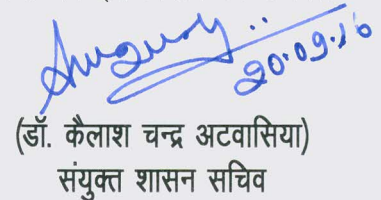 20.09.16
(डॉ. कैलाश चन्द्र अटवासिया)
संयुक्त शासन सचिव